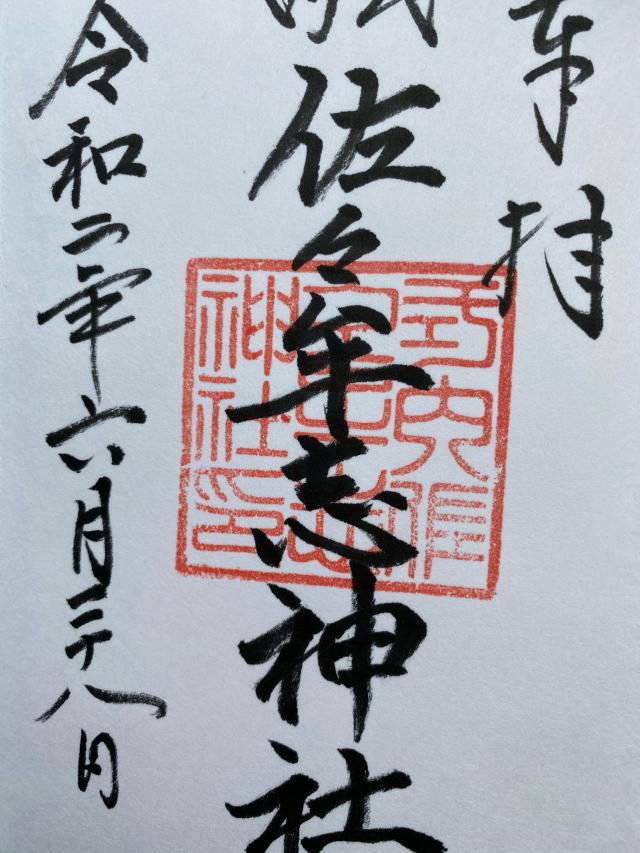 奉拝
佐々牟志神社
令和二年六月二十八日
式内佐
神社印